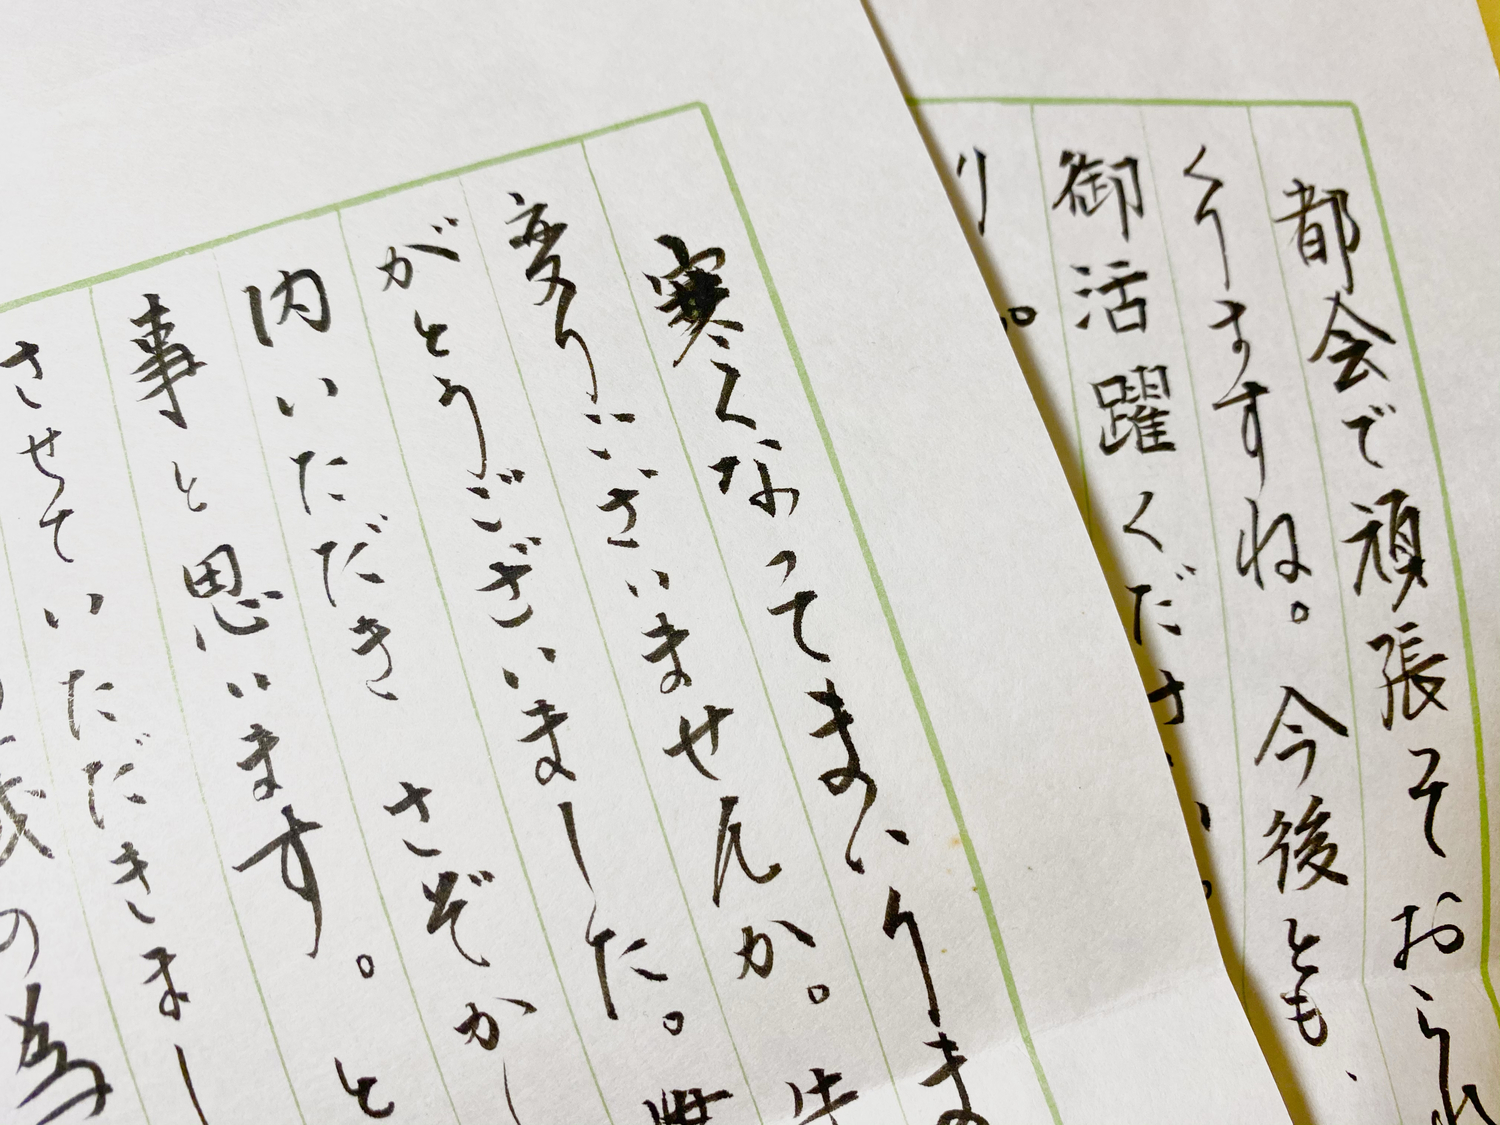 都会で頑張っておられ
くりますね。今後とも、
御活躍くださ
り
寒くなってまいりま
変りございませんか。先
がとうございました。
内いただき さぞかし
事と思います。と
させていただきまし
の為